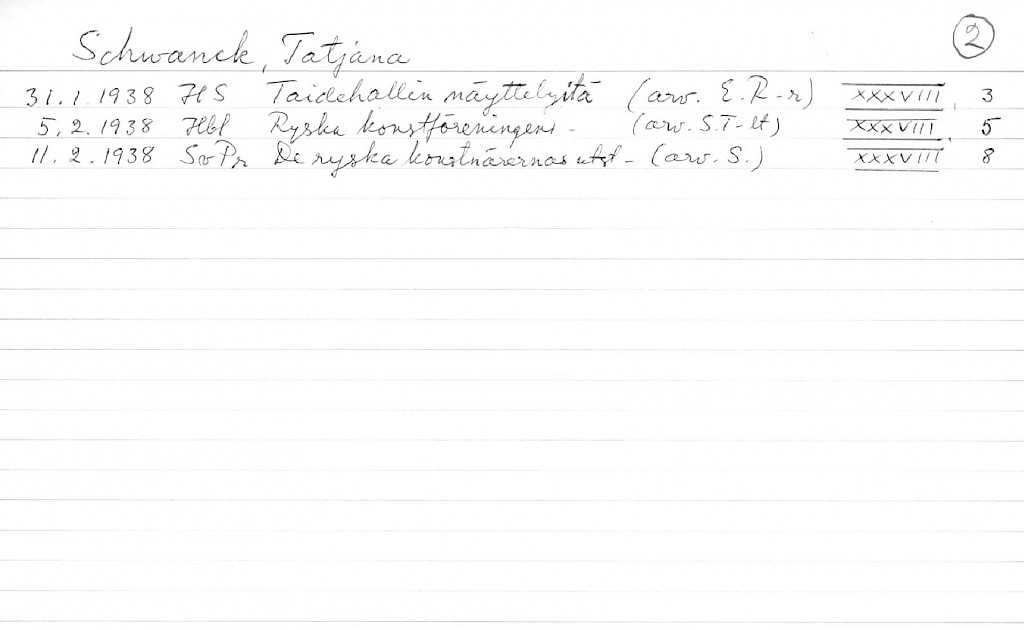 Schwanck, Tatjana ②
31.1.1938 HS Taidehallin näyttelyitä (arv. E.R-r) XXXVIII, 3
5.2.1938 Hbl Ryska konstföreningens - (arv. S.T-lt) XXXVIII, 5
11.2.1938 SvPr De ryska konstnärernas utst - (arv. S.) XXXVIII 8